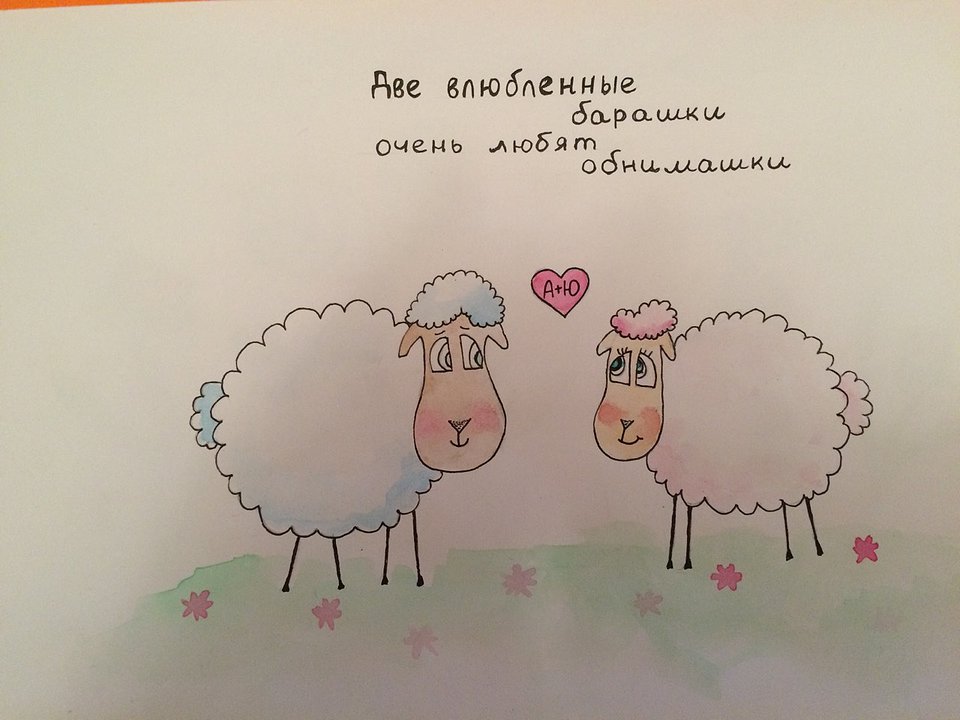 Две влюбленные
барашки
очень любят
обнимашки
А+Ю